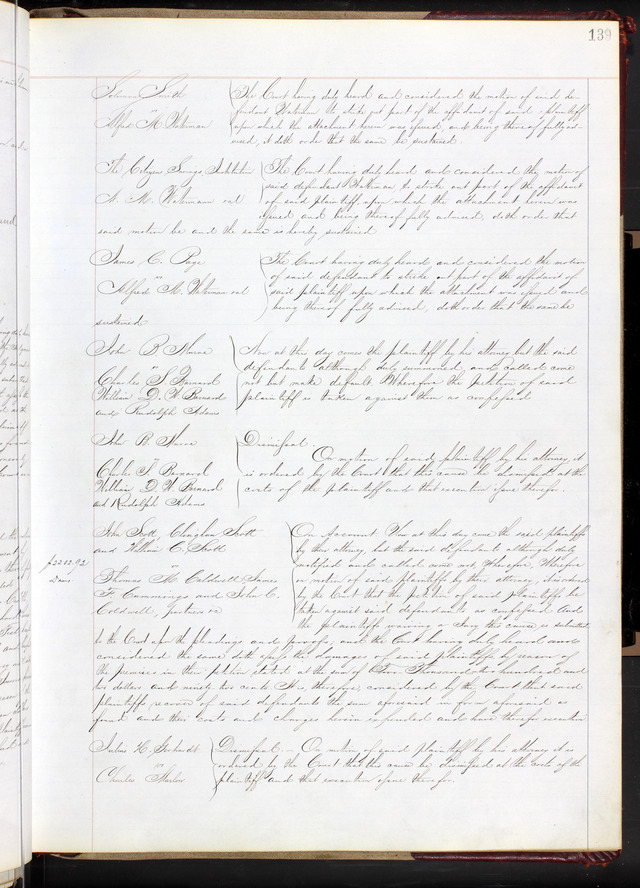 139
Solomon Smith The Court having duly heard and considered the motion of said de-
vs fendant Wakeman to strike out part of the affidavit of said plaintiff
Alfred M. Wakeman upon which the attachment herein was issued, and being thereof fully ad-
vised, it doth order that the same be sustained.
The Citizens Savings Institution The Court having duly heard and considered the motion of
vs said defendant Wakeman to strike out part of the affidavit
A. M. Wakeman et al of said plaintiff upon which the attachment herein was
issued and being thereof fully advised, doth order that
said motion be and the same is hereby sustained
James C. Page The Court having duly heard and considered the motion
vs of said defendant to strike out part of the affidavit of
Alfred M. Wakeman et al said plaintiff upon which the attachment was issued and
being thereof fully advised, doth order that the same be
sustained
John B. Now at this day comes the plaintiff by his attorney but the said
vs defendants although duly summoned and called come
Charles S. Barnard not but make default Wherefore the petition of said
William D. W. Barnard plaintiff is taken against them as confessed
and Rudolph Adams
John B. Dismissed.
vs On motion of said plaintiff by his attorney, it
Charles S. Barnard is ordered by the Court that this cause be dismissed at the
William D. W. Barnard costs of the plaintiff and that execution issue therefor.
and Rudolph Adams
John Scott, Scott On Account Now at this day come the said plaintiffs
and William C. Scott by their attorney, but the said defendants although duly
$2202.92 vs notified and called come not. Wherefore
Thomas M. Caldwell James on motion of said plaintiffs by their attorney, it is ordered
F. Cummings and John C. by the Court that the petition of said plaintiffs be
Caldwell, taken against said defendants as confessed. And
the plaintiffs waiving a Jury this cause is submitted
to the Court upon the pleadings and proofs, and the Court having duly heard and
considered the same doth find the damages of said plaintiffs by reason of
the premises in their petition stated at the sum of Two Thousand two hundred and
two dollars and ninety two cents It is, therefore, considered by the Court that said
plaintiffs recover of said defendants the sum aforesaid in form aforesaid as
found and their costs and charges herein expended and have therefor execution
Julius H. Dismissed. On motion of said plaintiff by his attorney it is
vs ordered by the Court that this cause be dismissed at the costs of the
Charles plaintiff and that execution issue therefor.